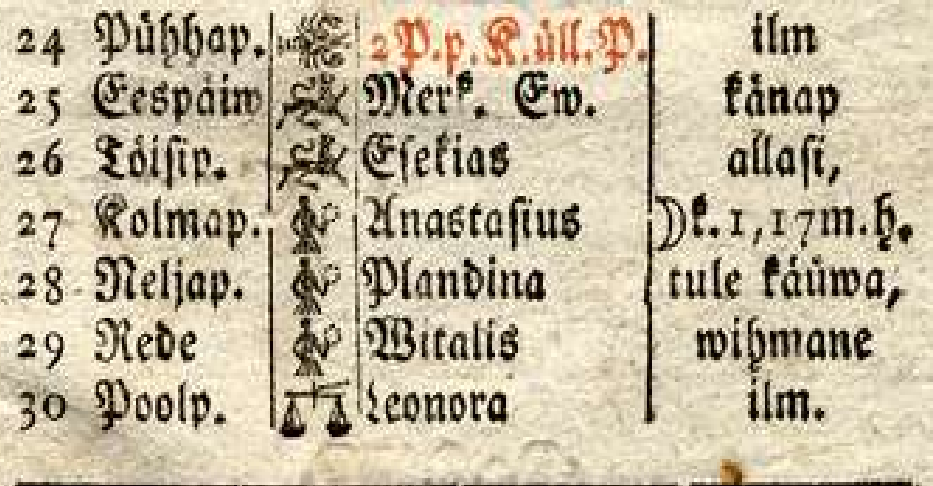 24 Pühhap. 2 P. p. K. üll. P. ilm
25 Eespäiw Merk. Ew. känap
26 Töisip. Esekias allasi,
27 Kolmap. Anastasius ☽k. 1, 17 m. h.
28 Neljap. Plandina tule käüwa,
29 Rede Witalis wihmane
30 Poolp. Leonora ilm.